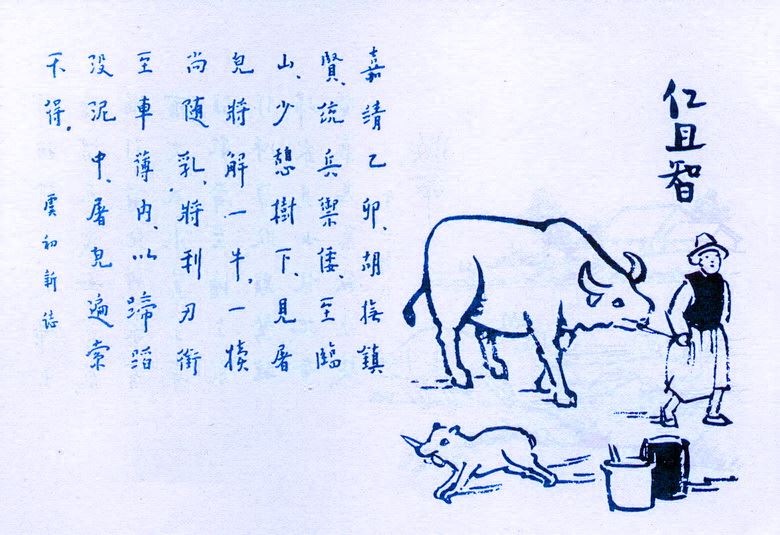 仁且智
嘉靖乙卯、胡撫鎮
賢、統兵禦倭、至臨
山、少憩樹下、見屠
兒將解一牛、一犢
尚隨乳、將利刃銜
至車薄內、以蹄蹈
沒泥中、屠兒遍索
不得。 虞初新誌